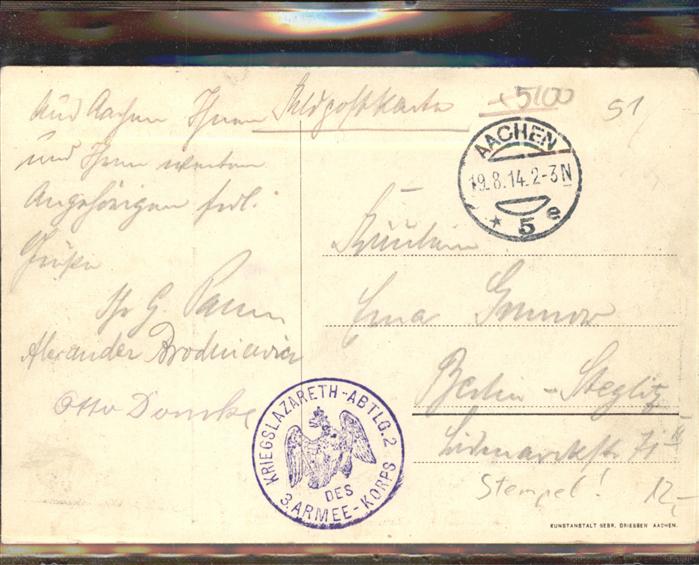 Aus Aachen Ihnen
und Ihren werten
Angehörigen frdl.
Grüße
Ihr G.
Alexander
Otto Domke
Feldpostkarte
+5100
51
AACHEN
19.8.14.2-3N
* 5 e
Fräulein
Erna
Berlin-Steglitz
71 II
Stempel!
12,-
KRIEGSLAZARETH-ABTLG.2
DES
3.ARMEE-KORPS
KUNSTANSTALT GEBR. DRIESSEN AACHEN.